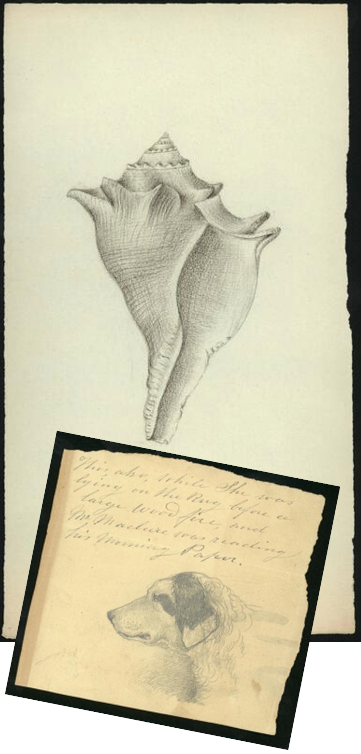 This also, while She was
lying on the Rug before a
large Wood fire, and
Mr. Maclure was reading
his Morning Paper.